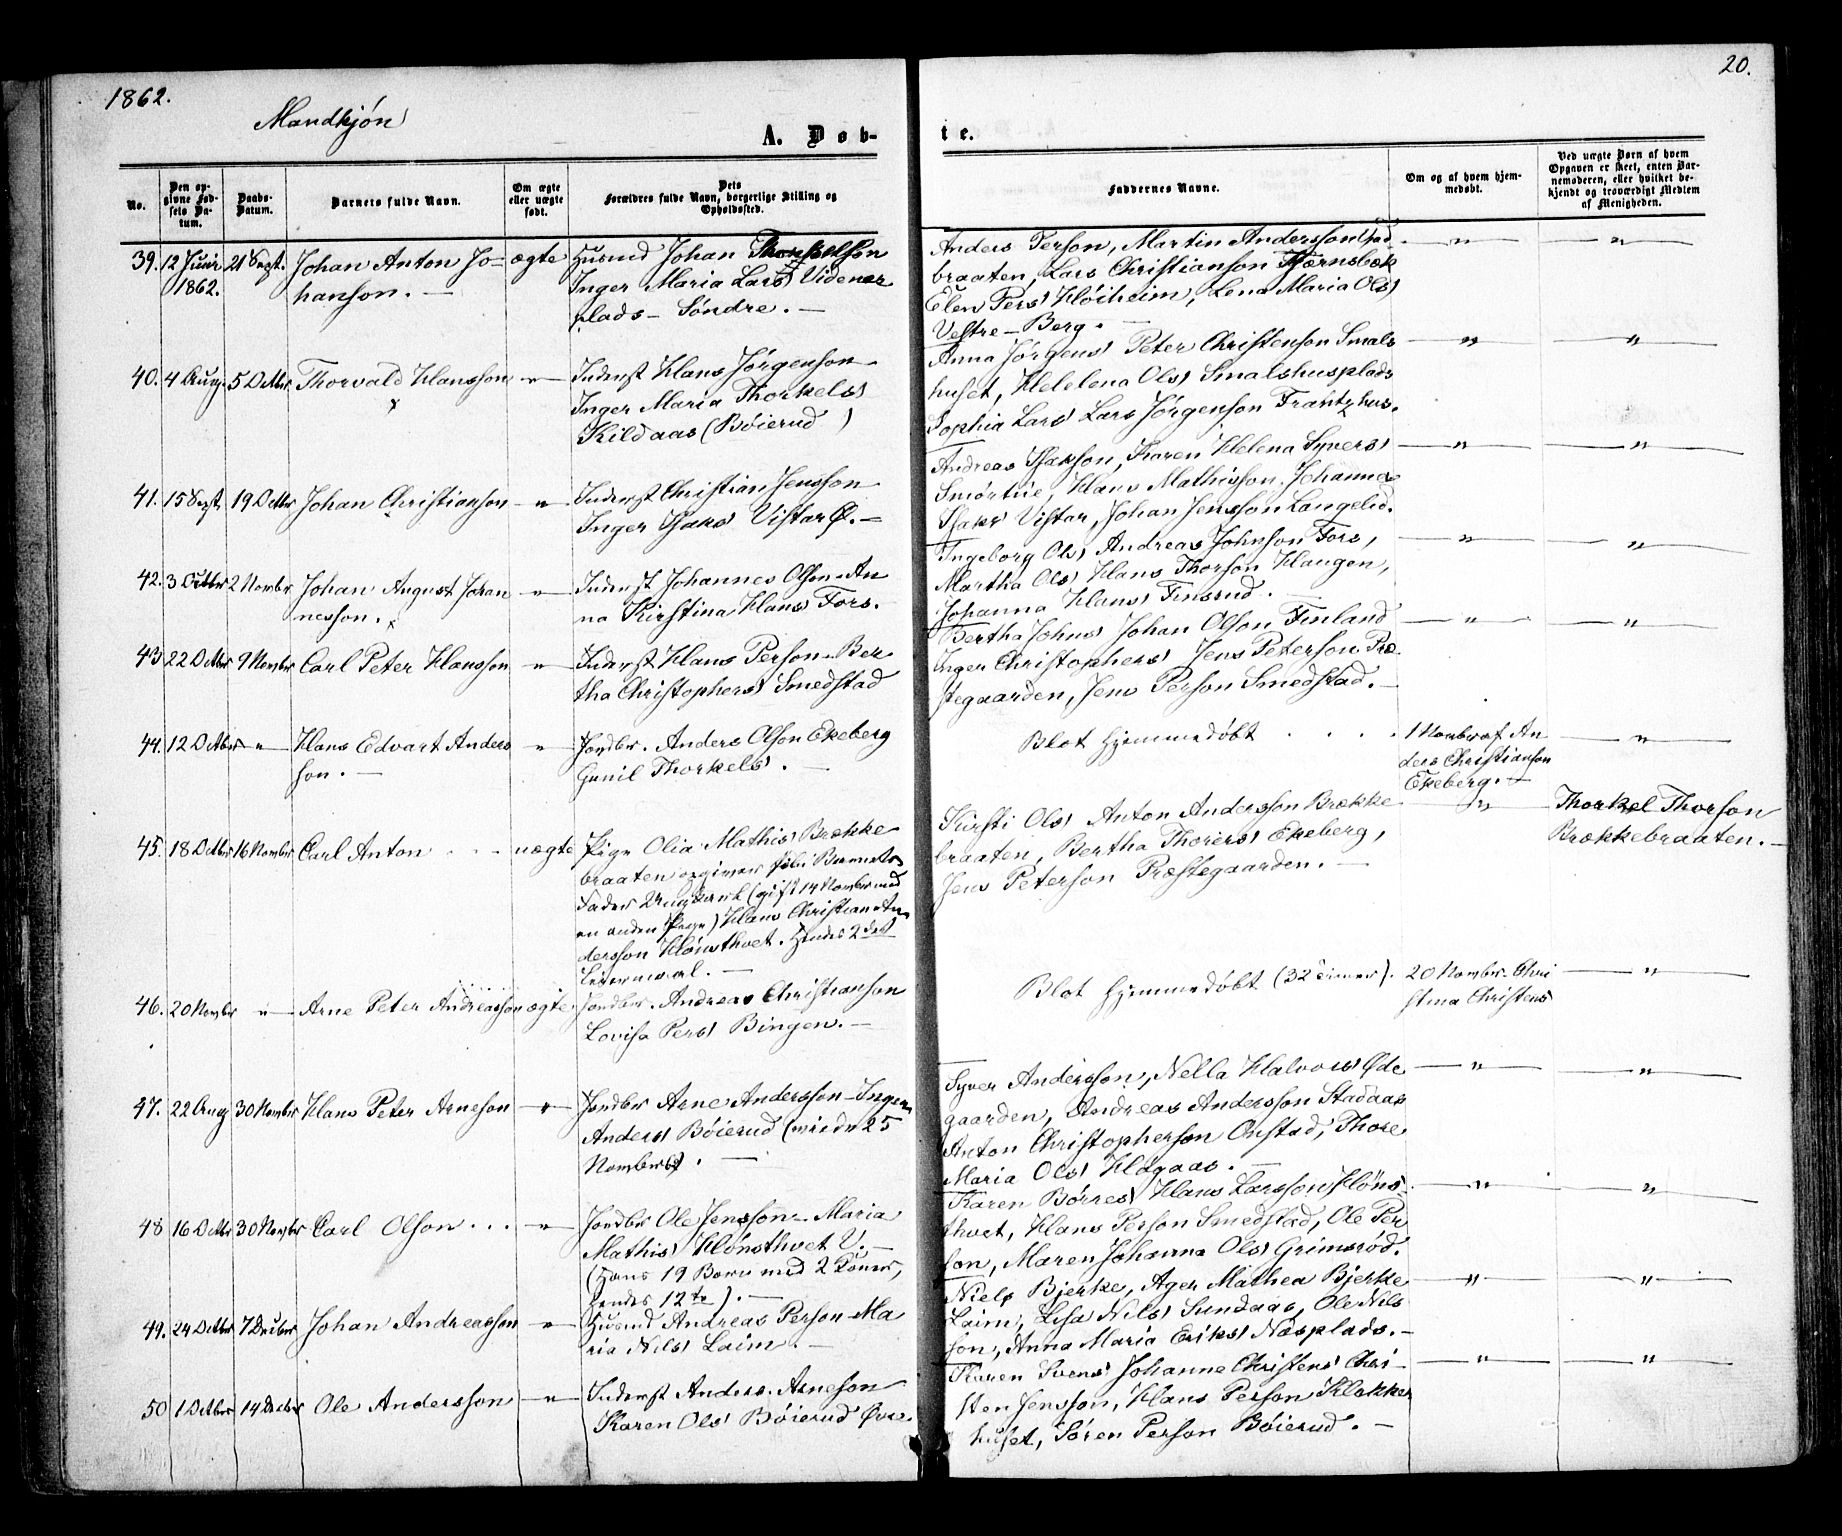 1862.
20.
Mandkjøn
A. Døb-
te.
No.
Den op-
givne Fød-
sels Da-
tum.
Daabs-
Datum.
Barnets fulde Navn.
Om ægte
eller uægte
født.
Dets
Forældres fulde Navn, borgerlige Stilling og
Opholdssted.
Faddernes Navne.
Om og af hvem hjem-
medøbt.
Ved uægte Børn af hvem
Opgaven er skeet, enten Bar-
nemoderen, eller hvilket be-
kjendt og troværdigt Medlem
af Menigheden.
39. 12 Juni 21 Sept. Johan Anton Jo- ægte Husmd Johan Thorkelson
1862. hanson. — Inger Maria Larsd Videnær
plads - Søndre. —
Anders Person, Martin Andersson
braaten, Lars Christianson Tjærnsbæk — " — — " —
Elen Persd Høiheim, Lena Maria Olsd
Vestre - Berg. —
40. 4 Aug. 5 Octbr Thorvald Hansson — " — Inderst Hans Jørgenson -
x Inger Maria Thorkelsd
Kildaas (Bøierud )
Anna Jørgensd Peter Christenson Smals — " — — " —
huset, Helelena Olsd Smalshusplads
Sophia Larsd Lars Jørgenson Frantzhus.
41. 15 Sept. 19 Octbr Johan Christianson — " — Inderst Christian Jensson -
Inger Isaksd Vistar Ø. —
Andreas Isakson, Karen Helena Syversd — " — — " —
Smørtue, Hans Mathisson, Johanna
Isaksd Vistar, Johan Jensson Langelid.
42. 3 Octbr 2 Novmbr Johan August Johan — " — Inderst Johannes Olsen - An
nesson. x na Kirstina Hansd Fors.
Ingeborg Olsd Andreas Johnson Fors, — " — — " —
Martha Olsd Hans Thorson Haugen,
Johanna Hansd Finsrud. —
43 22 Octbr 9 Novmbr Carl Peter Hansson — " — Inderst Hans Person - Ber
tha Christophersd Smedstad
Bertha Johnsd Johan Olson Finland — " — — " —
Inger Christophersd Jens Peterson Præ
stegaarden, Jens Person Smedstad. —
44. 12 Octbr — " — Hans Edvart Anders — " — Jordbr. Anders Olson Ekeberg
son. — Gunil Thorkelsd. —
Blot Hjemmedøbt . . . . 1 Novmbr af An — " —
ders Christianson
Ekeberg. —
45. 18 Octbr 16 Novmbr Carl Anton . . . uægte Pige Olia Mathisd Brække
braaten opgiver til Barnets
Fader Ungkarl (gift 14 Novmbr med
en anden Pige) Hans Christian An-
dersson Hønsthvet. Hendes 2det
Leiermaal. —
Kirsti Olsd Anton Andersson Brække — " — Thorkel Thorson
braaten, Bertha Thoresd Ekeberg, Brækkebraaten. —
Jens Peterson Præstegaarden. —
46. 20 Novmbr — " — Arne Peter Andreasson ægte Jordbr. Andreas Christianson
Lovisa Persd Bingen. —
Blot Hjemmedøbt (32 Timer). 20 Novmbr. Chri — " —
stina Christensd
47. 22 Aug 30 Novmbr Hans Peter Arneson — " — Jordbr Arne Andersson - Inger
Andersd Bøierud (viede 25
Novmbr 62). —
Syver Andersson, Nella Halvorsd Øde — " — — " —
gaarden, Andreas Andersson Stadaas
Anton Christopherson Onstad, Thore
Maria Olsd Hagaas. —
48 16 Octbr 30 Novmbr Carl Olson . . . — " — Jordbr Ole Jensson - Maria
Mathisd Hønsthvet V. —
(Hans 19 Barn med 2 Koner,
Hendes 12te). —
Karen Børresd Hans Larsson Høns- — " — — " —
thvet, Hans Person Smedstad, Ole Per
son, Maren Johanna Olsd Grimsrød.
49. 24 Octbr 7 Decbr Johan Andreasson — " — Husmd Andreas Person - Ma
ria Nilsd Laim. —
Niels Bjerke, Ager Mathea Bjerke — " — — " —
Laim, Lisa Nilsd Sundaas, Ole Nils
son, Anna Maria Eriksd Næsplads. —
50 1 Octbr 14 Decbr Ole Andersson — " — Inderst Anders Arneson
Karen Olsd Bøierud Øvre
Karen Svensd Johanne Christensd Chri- — " — — " —
sten Jensson, Hans Person Klokker
huset, Søren Person Bøierud. —